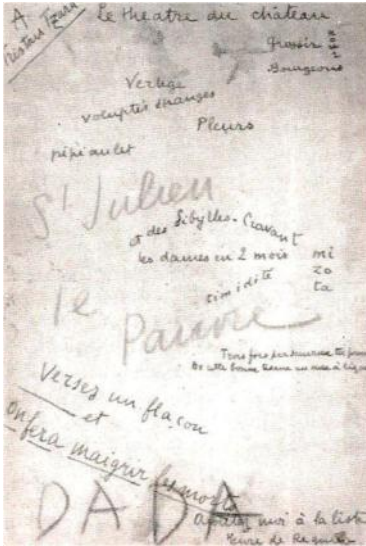 A
Tristan Tzara
Le theatre du château
grossir
Bourgeons
Vertige
voluptés étranges
Pleurs
pipi au lit
St Julien
et des Sibylles-Cravant
les dames en 2 mois
timidité
mi
zo
ta
le
Pauvre
Trois fois par
De cette bonne
Versez un flacon
et
on fera maigrir les morts
DADA
moi à la liste